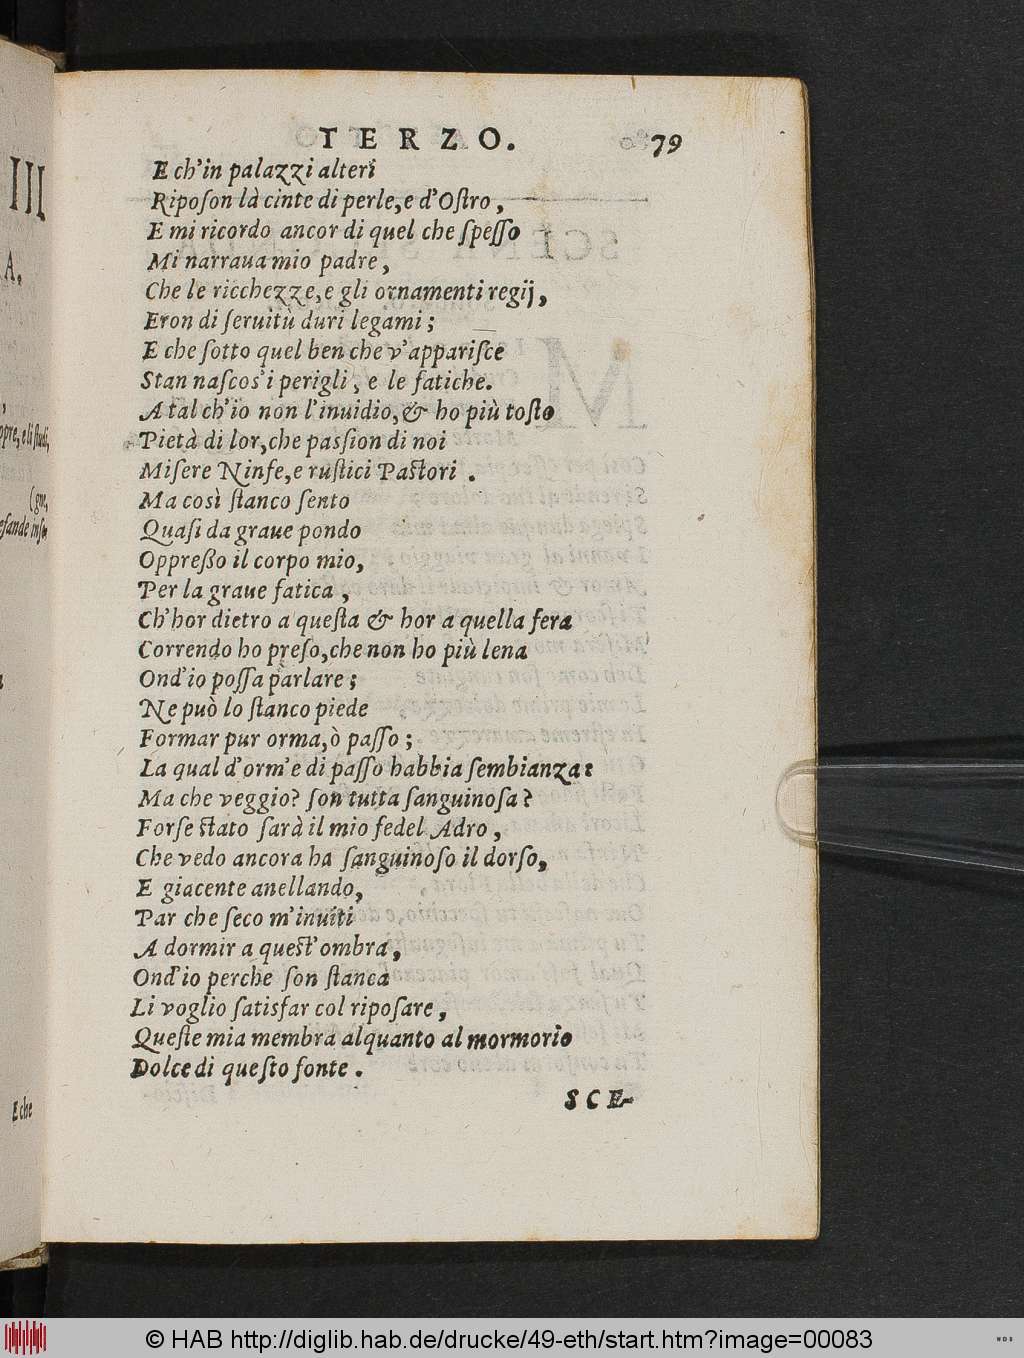 TERZO. 79
E ch'in palazzi alteri
Riposon là cinte di perle, e d'Ostro,
E mi ricordo ancor di quel che spesso
Mi narraua mio padre,
Che le ricchezze, e gli ornamenti regij,
Eron di seruitù duri legami;
E che sotto quel ben che v'apparisce
Stan nascos'i perigli, e le fatiche.
A tal ch'io non l'inuidio, & ho più tosto
Pietà di lor, che passion di noi
Misere Ninfe, e rustici Pastori.
Ma così stanco sento
Quasi da graue pondo
Oppreßo il corpo mio,
Per la graue fatica,
Ch'hor dietro a questa & hor a quella fera
Correndo ho preso, che non ho più lena
Ond'io possa parlare;
Ne può lo stanco piede
Formar pur orma, ò passo;
La qual d'orm'e di passo habbia sembianza:
Ma che veggio? son tutta sanguinosa?
Forse stato sarà il mio fedel Adro,
Che vedo ancora ha sanguinoso il dorso,
E giacente anellando,
Par che seco m'inuiti
A dormir a quest'ombra,
Ond'io perche son stanca
Li voglio satisfar col riposare,
Queste mia membra alquanto al mormorio
Dolce di questo fonte.
SCE-
III
A.
(gne,
E che
© HAB http://diglib.hab.de/drucke/49-eth/start.htm?image=00083